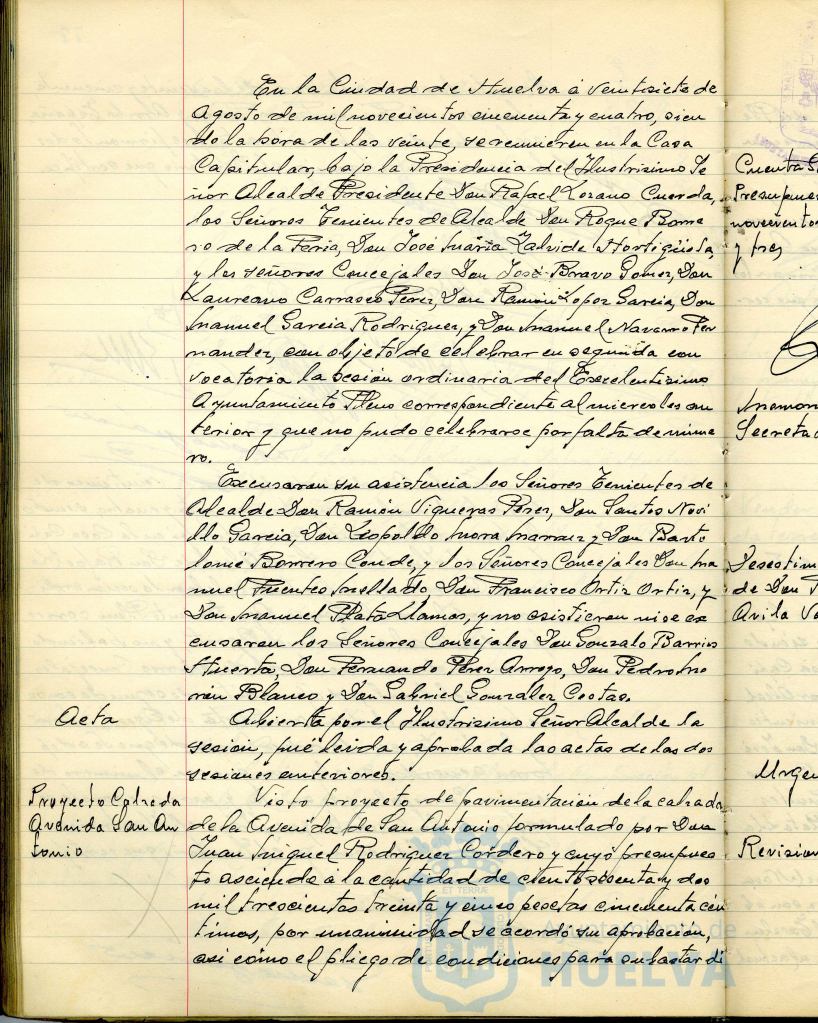 En la Ciudad de Huelva á veintisiete de
Agosto de mil novecientos cincuenta y cuatro, sien
do la hora de las veinte, se reunieron en la Casa
Capitular, bajo la Presidencia del Ilustrisimo Se
ñor Alcalde Presidente Don Rafael Lozano Cuerda,
los Señores Tenientes de Alcalde Don Roque Borre
ro de la Feria, Don José María Zalvide Hortigüela,
y los señores Concejales Don José Bravo Gomez, Don
Laureano Carrasco Perez, Don Ramón Lopez Garcia, Don
Manuel Garcia Rodriguez, y Don Manuel Navarro Fer
nandez, con objeto de celebrar en segunda con
vocatoria la sesión ordinaria del Excelentisimo
Ayuntamiento Pleno correspondiente al miercoles an
terior y que no pudo celebrarse por falta de núme
ro.
Excusaron su asistencia los Señores Tenientes de
Alcalde Don Ramón Vigueras Perez, Don Santos Novi
llo Garcia, Don Leopoldo Mora Marruz y Don Barto
lomé Borrero Conde, y los Señores Concejales Don Ma
nuel Fuentes Mellado, Don Francisco Ortiz Ortiz, y
Don Manuel Plata Llamas, y no asistieron ni se ex
cusaron los Señores Concejales Don Gonzalo Barrios
Huerta, Don Fernando Pérez Arroyo, Don Pedro Mo
rón Blanco y Don Gabriel González Costas.
Acta
Abierta por el Ilustrisimo Señor Alcalde la
sesión, fué leida y aprobada las actas de las dos
sesiones anteriores.
Proyecto Calzada
Avenida San An
tonio
Visto proyecto de pavimentación de la calzada
de la Avenida de San Antonio formulado por Don
Juan Miguel Rodriguez Cordero y cuyo presupues
to asciende á la cantidad de ciento sesenta y dos
mil trescientas treinta y cinco pesetas cincuenta cén
timos, por unanimidad se acordó su aprobación,
asi como el pliego de condiciones para subastar di
Cuenta
Presupues
novecientos
y tres
Secreta
Desestim
de Don
Avila
Urgen
Revision
HUELVA